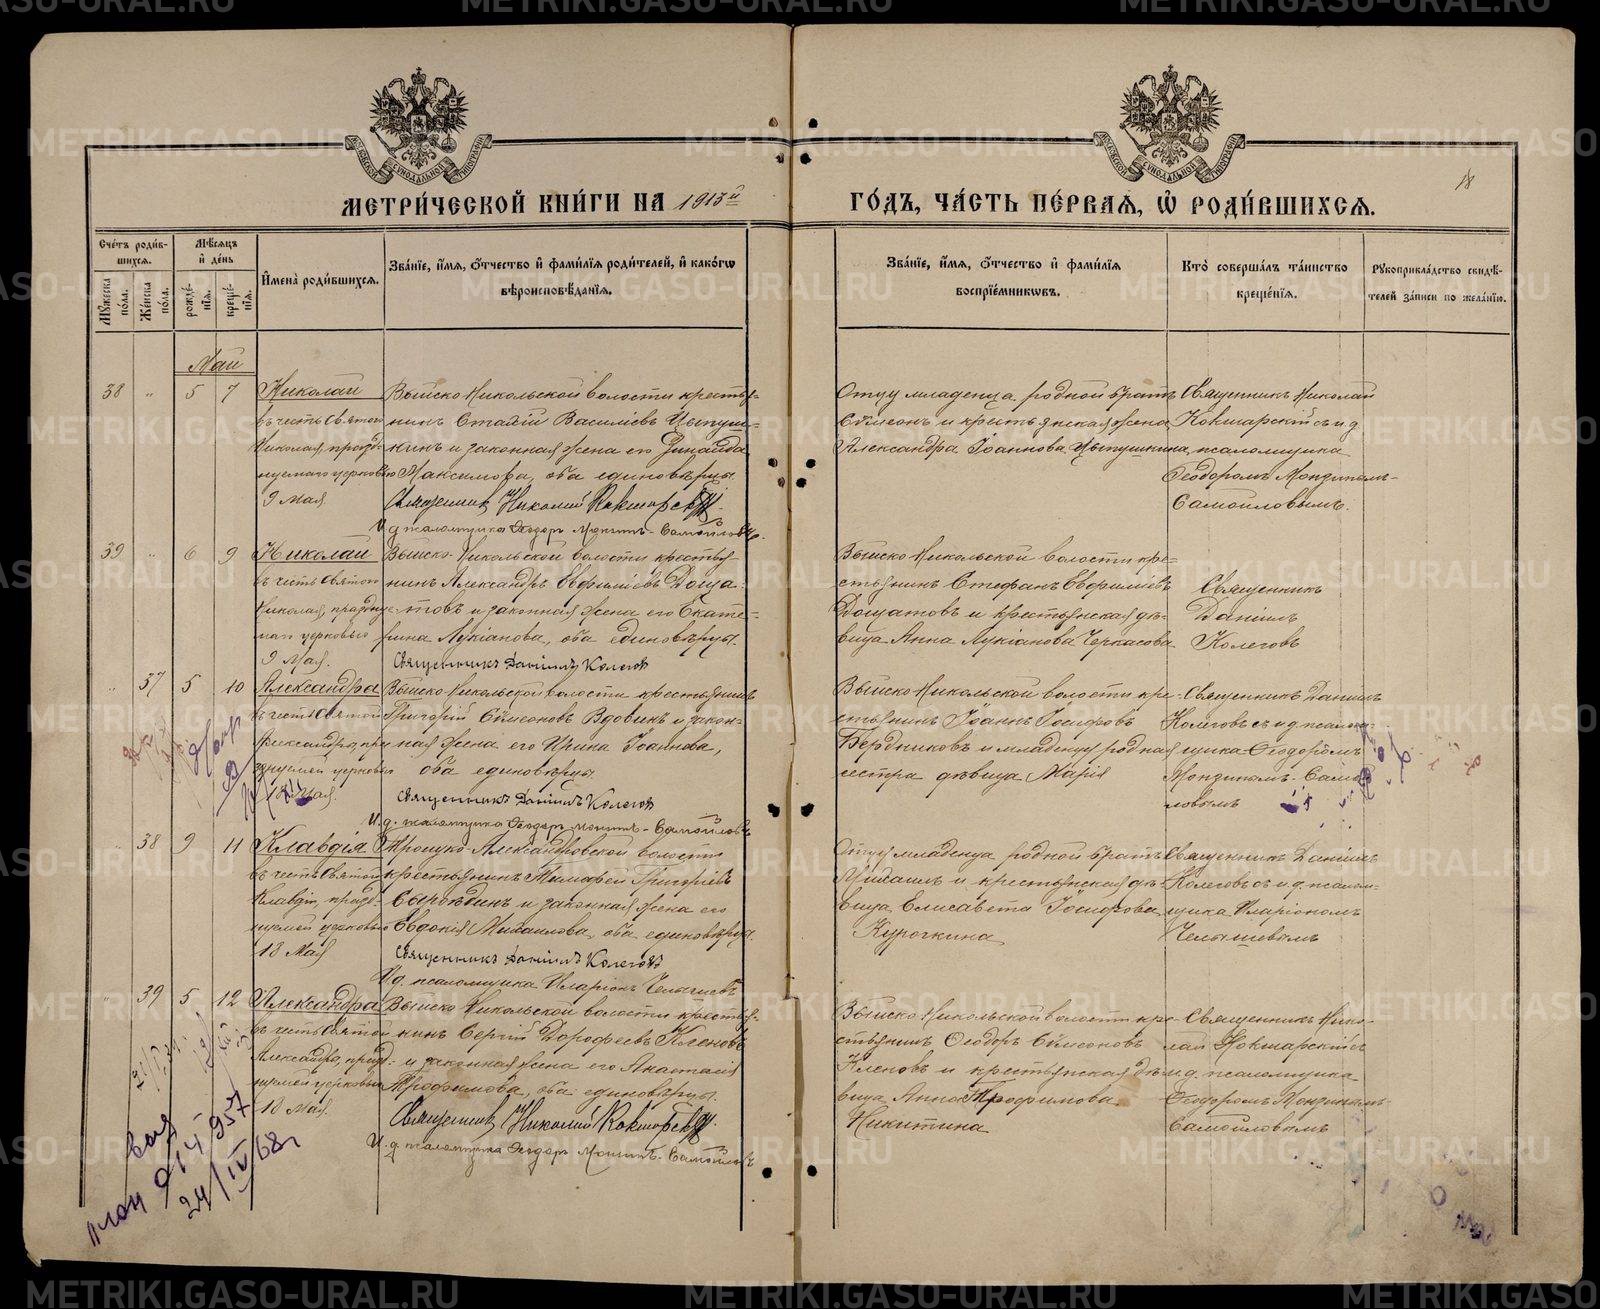 METRIKI.GASO-URAL.RU
МОСКОВСКОЙ СѴНОДАЛЬНОЙ ТИПОГРАФІИ
МЕТРИ́ЧЕСКОЙ КНИ́ГИ НА 1913й
ГО́ДЪ, ЧА́СТЬ ПЕ́РВАЯ, Ѡ҆ РОДИ́ВШИХСЯ.
18
Сче́тъ роди́в-
шихся.
Мѣ́сяцъ
и҆ де́нь
Мꙋ́жеска
по́ла.
Же́нска
по́ла.
рожде́-
нїя.
креще́-
нїя.
И҆мена̀ роди́вшихся.
Зва́нїе, и҆́мя, ѻ҆́тчество и҆ фами́лїя роди́телей, и҆ како́гѡ
вѣроисповѣ́данїя.
Зва́нїе, и҆́мя, ѻ҆́тчество и҆ фами́лїя
воспрїе́мникѡвъ.
Кто̀ соверша́лъ та́инство
креще́нїя.
Рꙋкоприкла́дство свидѣ́-
телей за́писи по жела́нїю.
Май
38 " 5 7 Николай
въ честь Святого
Николая, празд-
нуемаго церковью
9 Мая
Выйско-Никольской волости крестья-
нинъ Василіевъ Цыпуш-
кинъ и законная жена его Зинаида
Максимова, оба единовѣрцы.
Священникъ Николай Кокшарскій
И. д. псаломщика Ѳеодоръ
Отцу младенца родной братъ
Сѵмеонъ и крестьянская жена
Александра Іоаннова Цыпушкина
Священникъ Николай
Кокшарскій съ и. д.
псаломщика
Ѳеодоромъ
Самойловымъ.
39 " 6 9 Николай
въ честь Святого
Николая, праздну-
церковью
9 Мая.
Выйско-Никольской волости крестья-
нинъ Александръ Евѳиміевъ Доща-
товъ и законная жена его Екате-
рина Лукіанова, оба единовѣрцы.
Священникъ Даніилъ Колеговъ
Выйско-Никольской волости кре-
стьянинъ Стефанъ Евѳиміевъ
Дощатовъ и крестьянская дѣ-
вица Анна Лукіанова Черкасова
Священникъ
Даніилъ
Колеговъ
" 37 5 10 Александра
въ честь Святой
Александры, пра-
зднуемой церковью
Мая.
Выйско-Никольской волости крестьянинъ
Григорій Сѵмеоновъ Вдовинъ и закон-
ная жена его Ирина Іоаннова,
оба единовѣрцы
Священникъ Даніилъ Колеговъ
И. д. псаломщика Ѳеодоръ
Выйско-Никольской волости кре-
стьянинъ Іоаннъ Іосифовъ
Бердниковъ и младенцу родная
сестра дѣвица Марія
Священникъ Даніилъ
Колеговъ съ и. д. псалом-
щика Ѳеодоромъ
Самой-
ловымъ
" 38 9 11 Клавдія
въ честь Святой
Клавдіи, празд-
нуемой церковью
18 Мая
Троицко-Александровской волости
крестьянинъ Григоріевъ
Сыропдинъ и законная жена его
Евдокія Михаилова, оба единовѣрцы.
Священникъ Даніилъ Колеговъ
И. д. псаломщика Иларіонъ Челышевъ
Отцу младенца родной братъ
Михаилъ и крестьянская дѣ-
вица Елисавета Іосифова
Курочкина
Священникъ Даніилъ
Колеговъ съ и. д. псалом-
щика Иларіономъ
Челышевымъ
" 39 5 12 Александра
въ честь Святой
Александры, празд-
нуемой церковью
18 Мая.
Выйско-Никольской волости крестья-
нинъ Сергій Дорофеевъ Кленовъ
и законная жена его Анастасія
Трофимова, оба единовѣрцы.
Священникъ Николай Кокшарскій
И. д. псаломщика Ѳеодоръ
Выйско-Никольской волости кре-
стьянинъ Ѳеодоръ Сѵмеоновъ
Кленовъ и крестьянская дѣ-
вица Анна Трофимова
Никитина
Священникъ Нико-
лай Кокшарскій съ
и. д. псаломщика
Ѳеодоромъ
Самойловымъ
24/IV 68